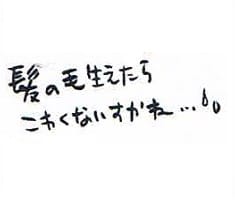 髪の毛生えたら
こわくないすかね…。